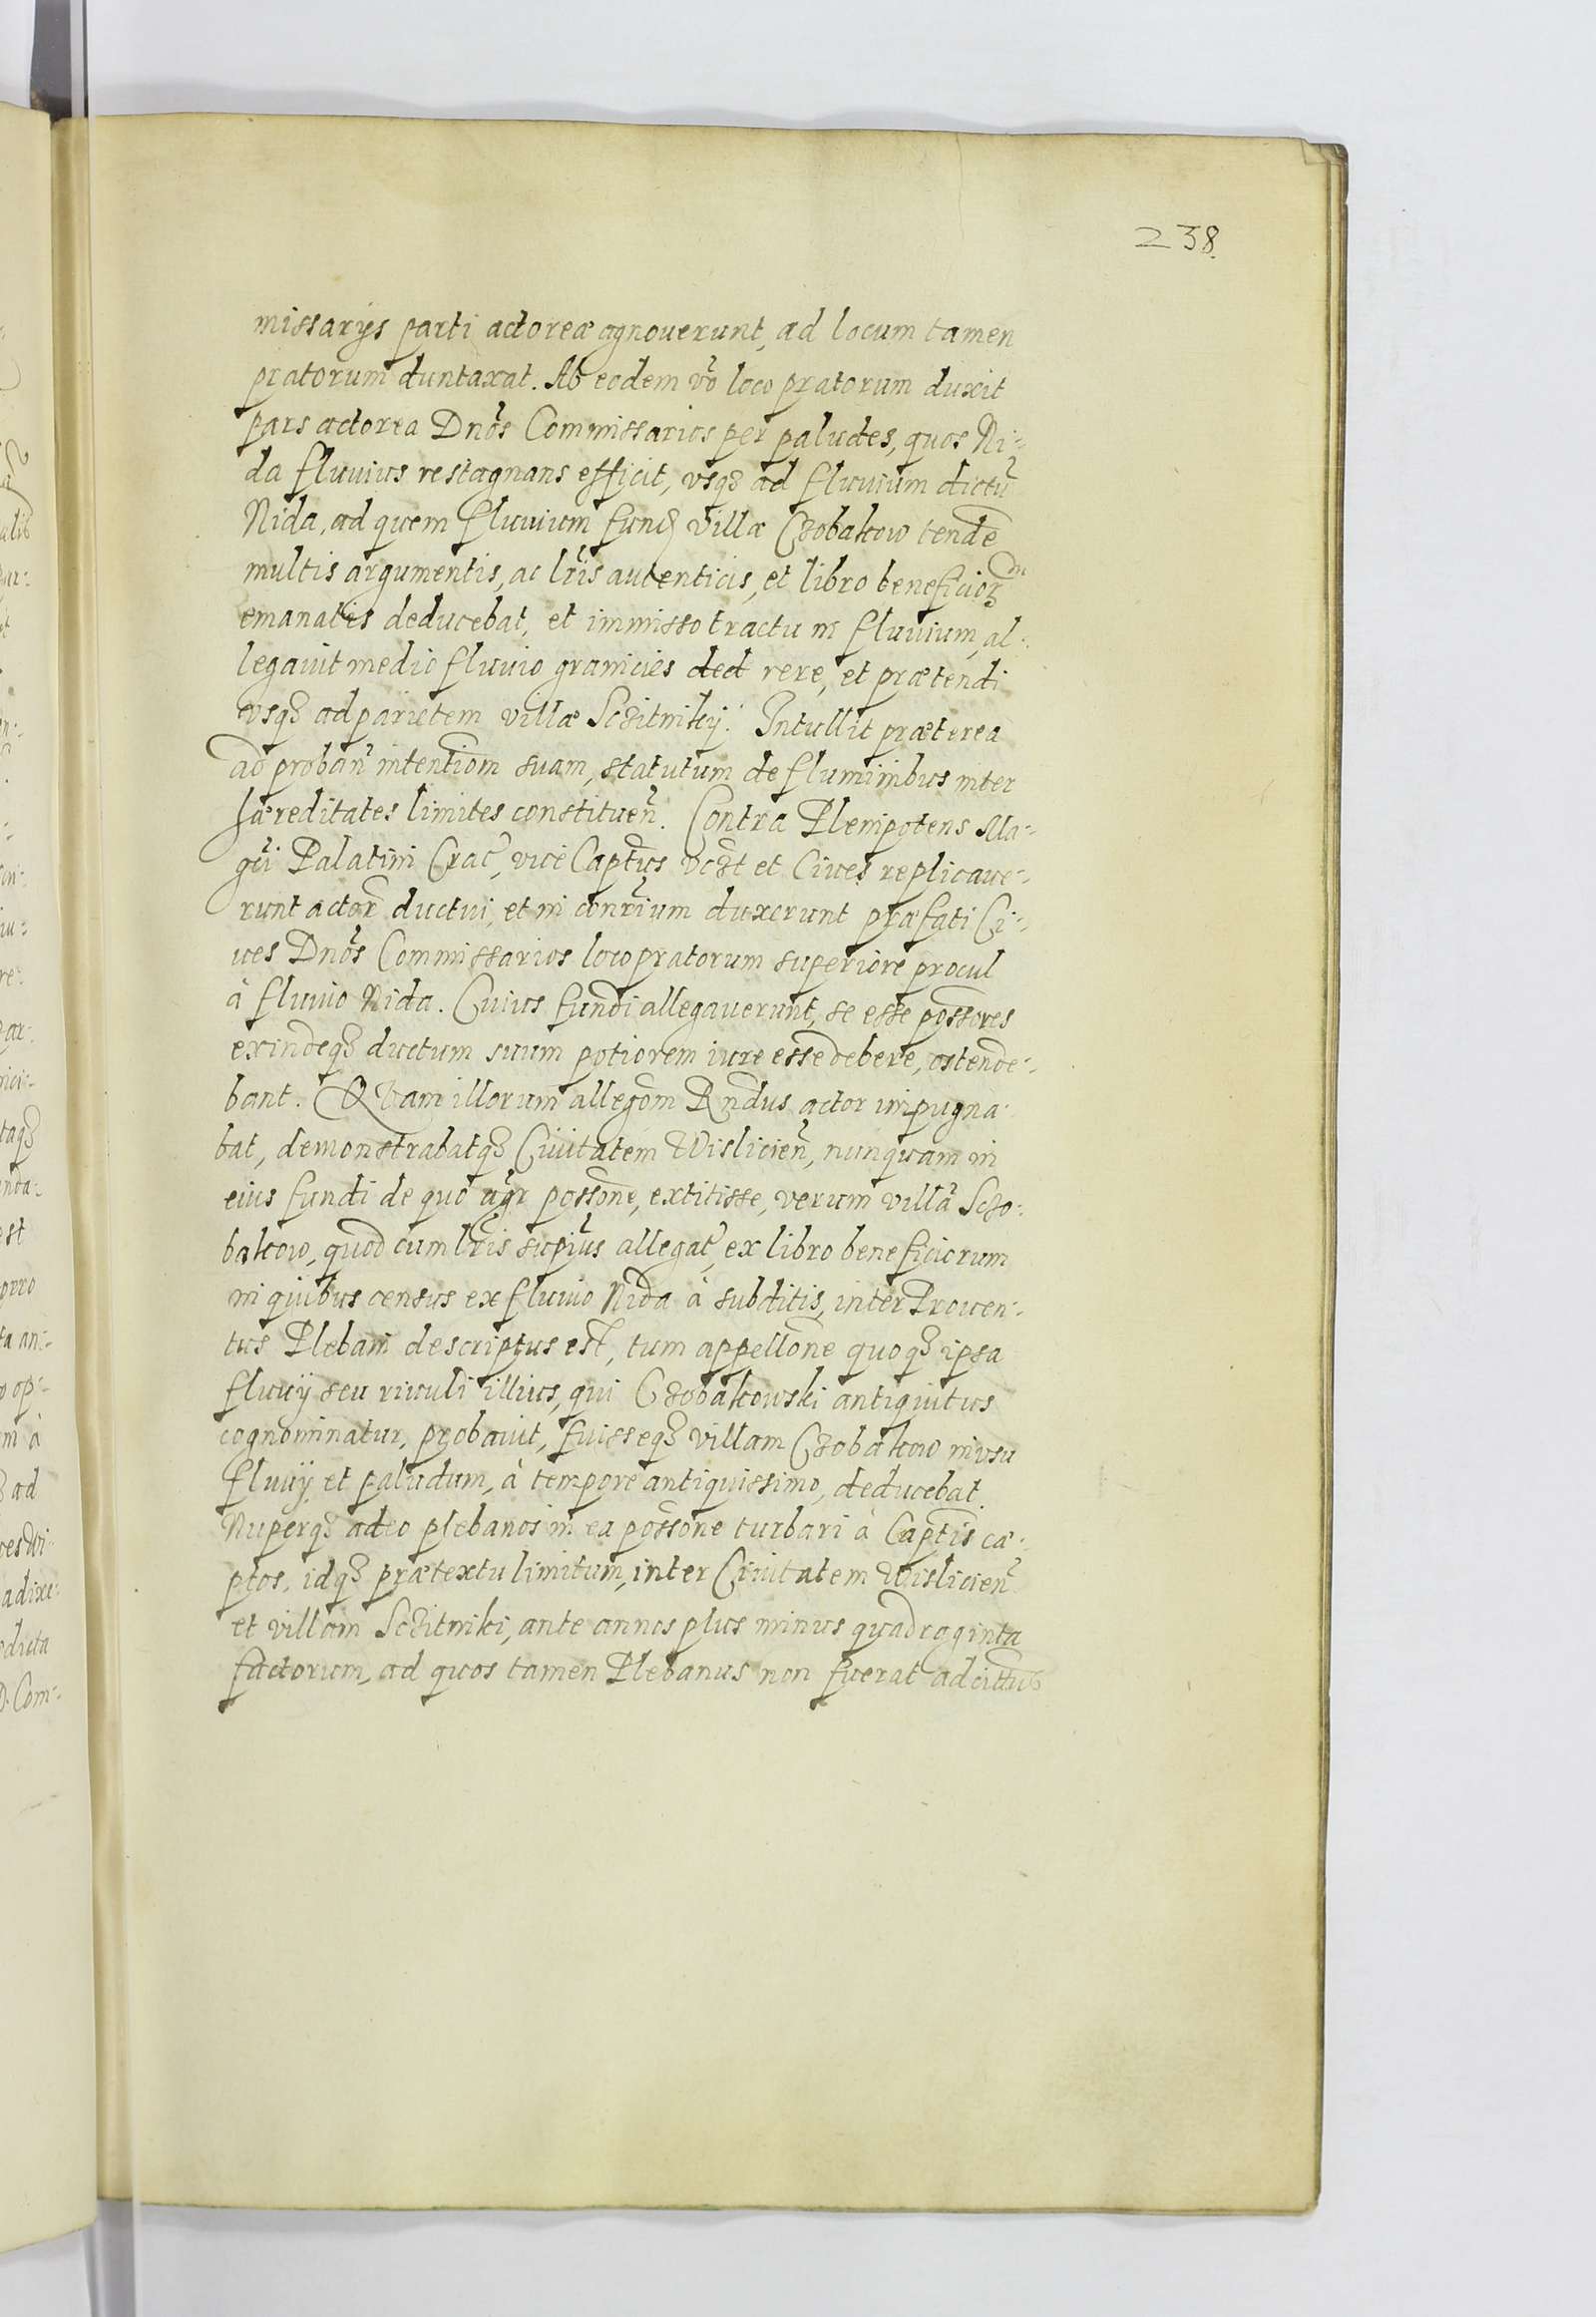 238.
missarÿs parti actoreæ agnouerunt, ad locum tamen
pratorum duntaxat. Ab eodem vo loco pratorum duxit
pars actorea Dnos Commissarios per paludes, quos Ni-
da fluuius restagnans efficit, vsq3 ad fluuium dictũ
Nida, ad quem fluuium villæ Czobakow tende
multis argumentis, ac lris autenticis, et libro beneficioꝝ
emanatis deducebat, et immisso tractu in fluuium, al-
legauit medio fluuio granicies et prætendi
vsq3 ad parietem villæ Sczitniky. Intullit præterea
ad proban intentiom suam, statutum de fluminibus inter
hæreditates limites constituen. Contra Plenipotens Ma-
gci Palatini Crac, vice Captus vczt et Ciues replicaue-
runt actor ductui, et in conrium duxerunt præfati Ci-
ues Dnos Commissarios loco pratorum superiore procul
à fluuio Nida. Cuius fundi allegauerunt, se esse possores
exindeq3 ductum suum potiorem iure esse debere, ostende-
bant. Quam illorum allegom Rndus actor impugna-
bat, demonstrabatq3 Ciuitatem Wislicien, nunquam in
eius fundi de quo agr possone, extitisse, verum villã Sczo-
bakow, quod cum lris supius allegat, ex libro beneficiorum
in quibus census ex fluuio Nida à subditis, inter Prouen-
tus Plebani descriptus est, tum appellone quoq3 ipsa
fluuÿ seu riuuli illius, qui Czobakowski antiquitus
cognominatur, probauit, fuisseq3 villam Czobakow in vsu
fluuÿ et paludum, à tempore antiquissimo, deducebat.
Nuperq3 adeo plebanos in ea possone turbari à Captis cæ-
ptos, idq3 prætextu limitum, inter Ciuitatem Wislicien
et villam Sczitniki, ante annos plus minus quadraginta
factorum, ad quos tamen Plebanus non fuerat adcittus